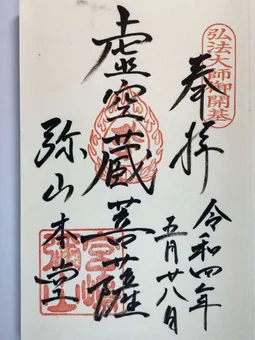 弘法大師御開基
奉拝
令和四年
五月廿八日
虚空蔵菩薩
弥山本堂